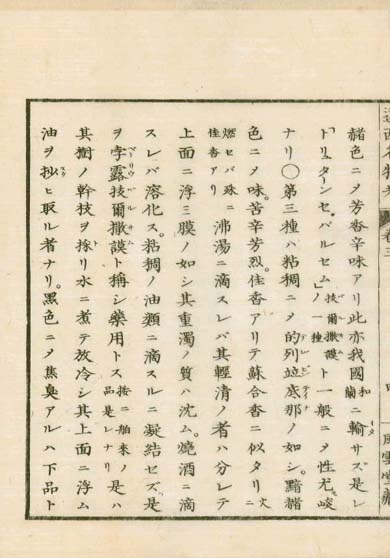 赭色ニ〆芳香辛味アリ此亦我國和蘭ニ輸サズ是レ
「ドリュターンセ。バルセム」ノ一種技爾撒謨ト一般ニ〆性尤峻
ナリ〇第三種ハ粘稠ニ〆的列竝底那ノ如シ。黯赭
色ニ〆味。苦辛芳烈。佳香アリテ蘇合香ニ似タリ火ニ
燃セバ殊ニ佳香アリ沸湯ニ滴スレバ其輕清ノ者ハ分レテ
上面ニ浮ミ膜ノ如シ其重濁ノ質ハ沈ム。燒酒ニ滴
スレバ溶化ス。粘稠ノ油類ニ滴スルニ凝結セズ是
ヲ孛露技爾撒謨ト稱シ藥用トス按ニ舶來ノ品是レナリ是ハ
其樹ノ幹技ヲ採リ水ニ煮テ放冷シ其上面ニ浮ム
油ヲ抄ヒ取ル者ナリ。黑色ニ〆焦臭アルハ下品ト